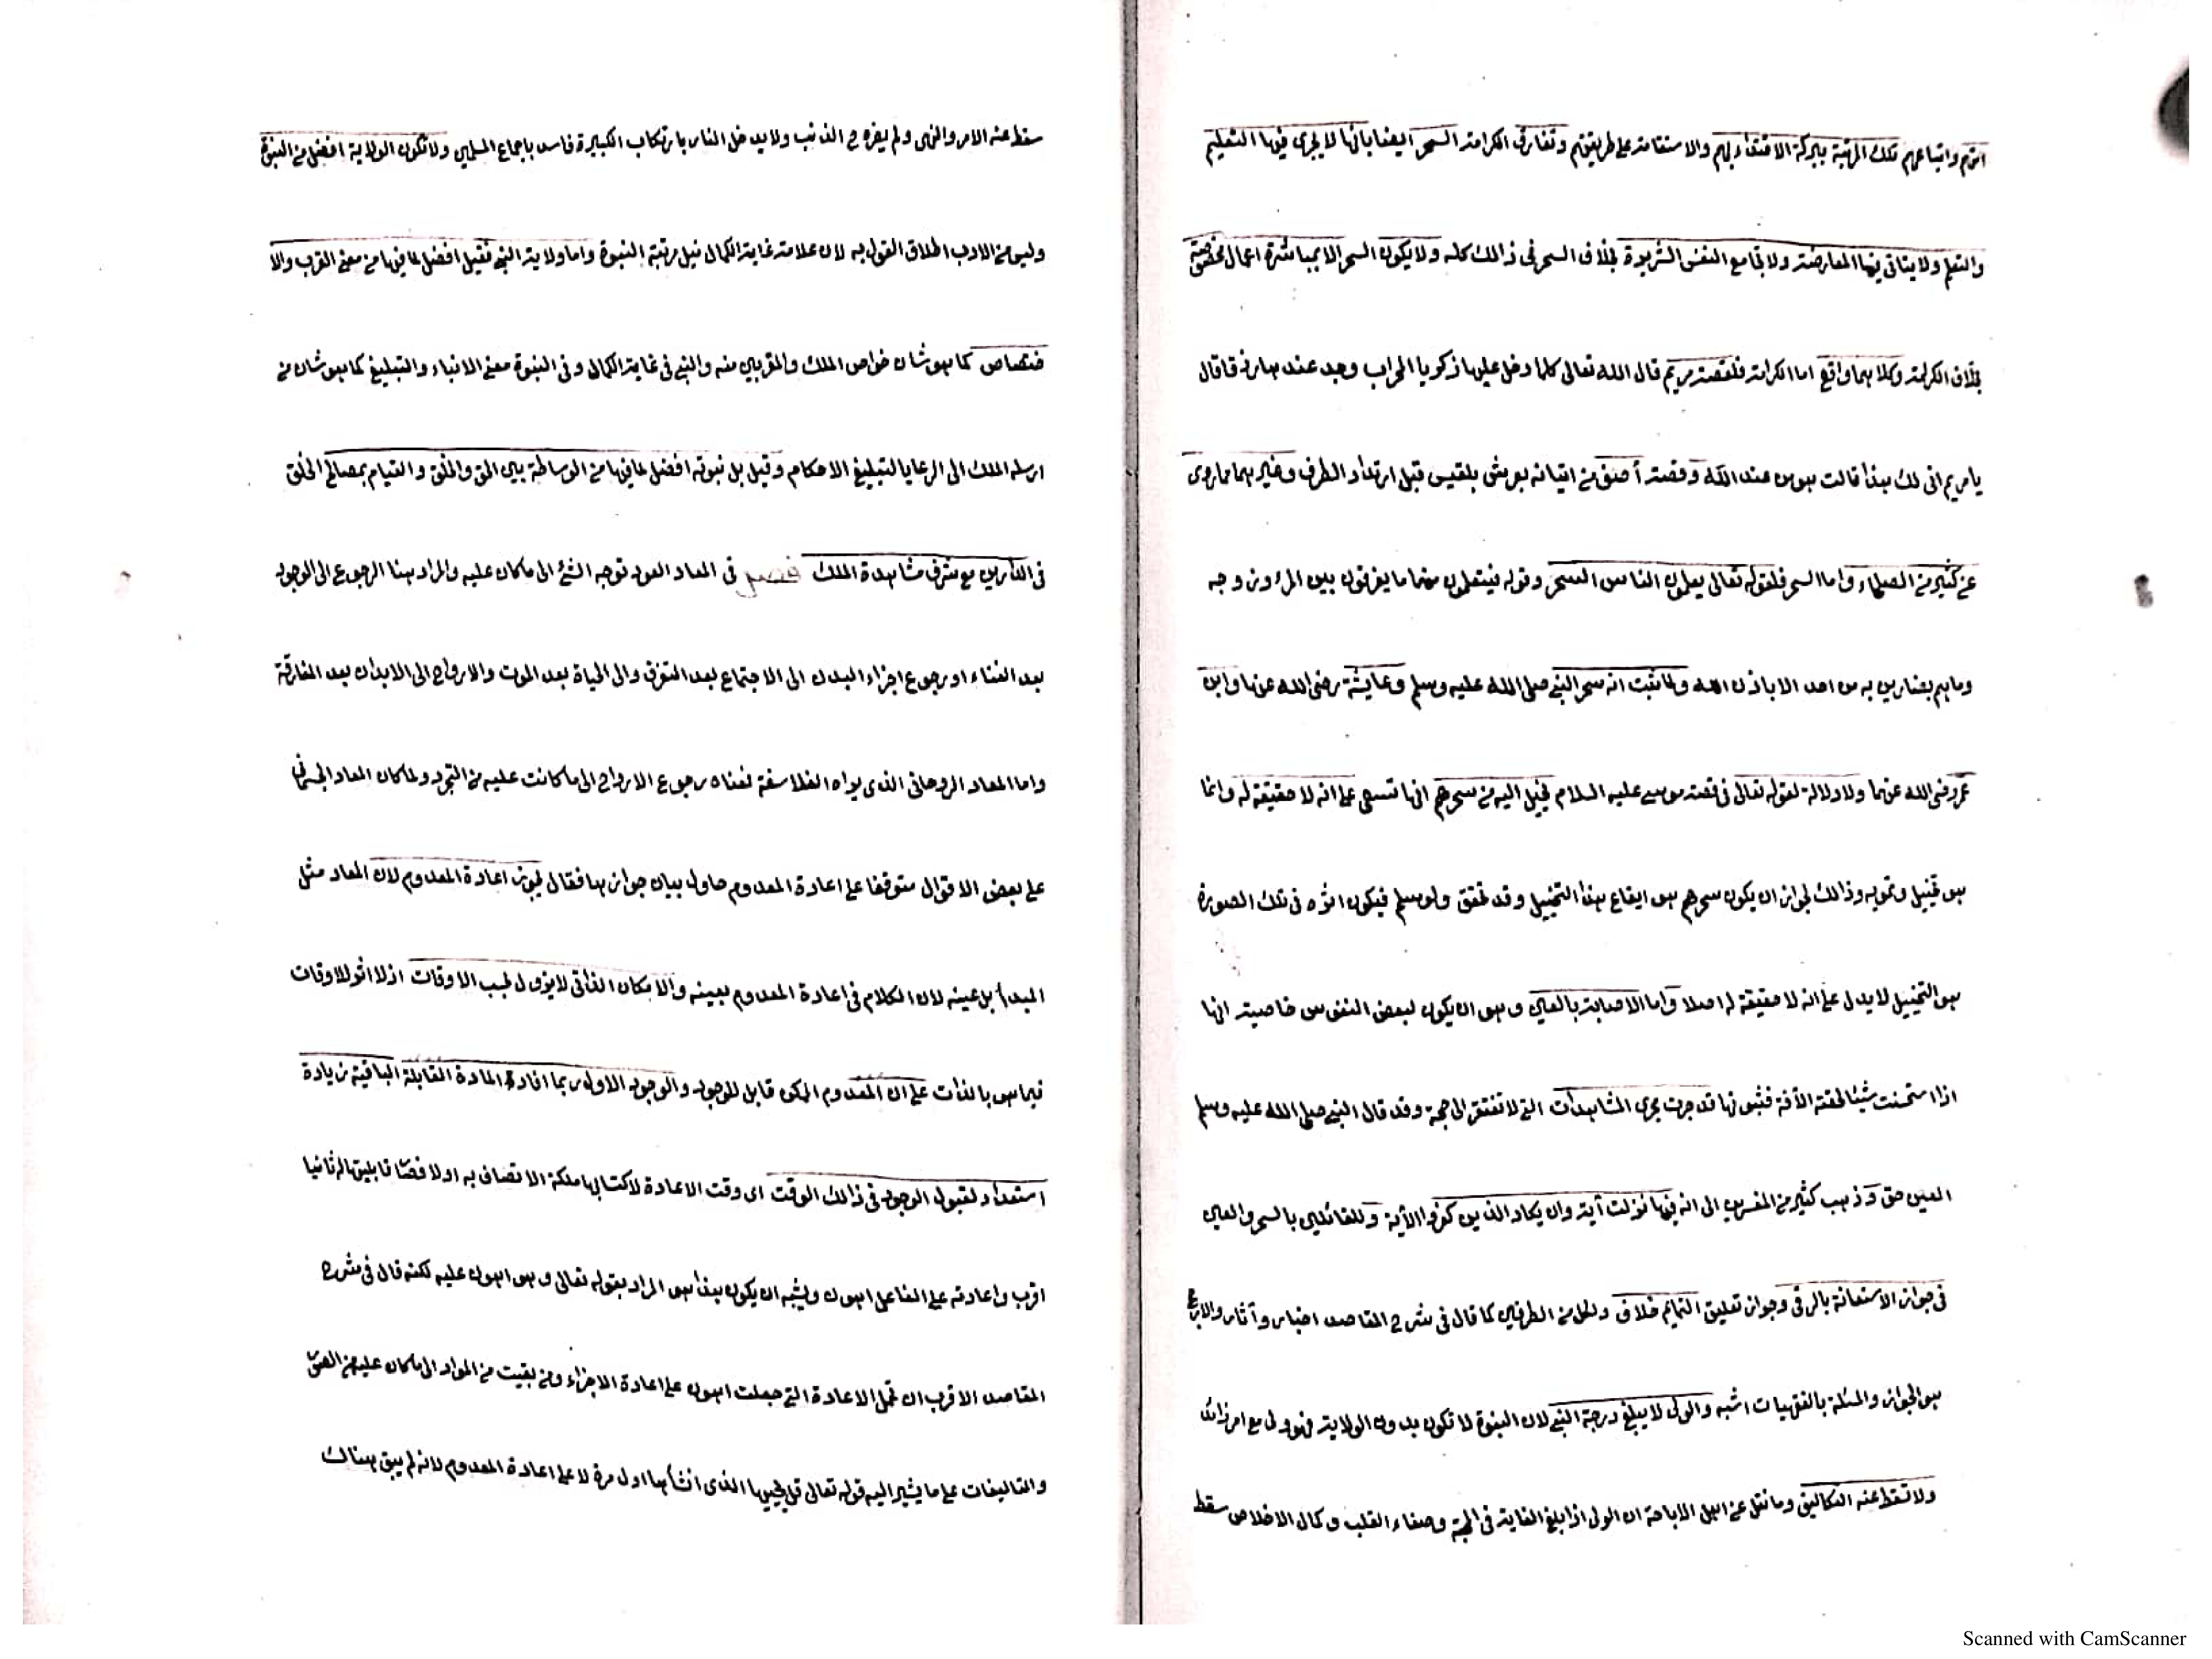 اثرهم واتباعهم تلك المرتبة ببركة الاقتداء بهم والاستقامة على طريقتهم وتفارق الكرامة السحر ايضا بانها لا يجرى فيها التعليم
والتعلم ولا يتاتى فيها المعارضة ولا تجامع النفس الشريرة بخلاف السحر فى ذالك كله ولا يكون السحر الا بمباشرة اعمال مخصوصة
بخلاف الكرامة وكلاهما واقع اما الكرامة فلقصة مريم قال الله تعالى كلما دخل عليها زكريا المحراب وجد عندها رزقا قال
يا مريم انى لك هذا قالت هو من عند الله وقصة آصف من اتيانه بعرش بلقيس قبل ارتداد الطرف وغيرهما مما روى
عن كثير من الصلحاء واما السحر فلقوله تعالى يعلمون الناس السحر وقوله فيتعلمون منهما ما يفرقون بين المرء وزوجه
وما هم بضارين به من احد الا باذن الله ولما ثبت انه سحر النبى صلى الله عليه وسلم وعايشة رضى الله عنها وابن
عمر رضى الله عنهما ولا دلالة لقوله تعالى فى قصة موسى عليه السلام يخيل اليه من سحرهم انها تسعى على انه لا حقيقة له وانما
هو تخييل وتمويه وذالك لجواز ان يكون سحرهم هو ايقاع هذا التخييل وقد تحقق ولو سلم فيكون اثره فى تلك الصورة
هو التخييل لا يدل على انه لا حقيقة له اصلا واما الاصابة بالعين وهو ان يكون لبعض النفوس خاصية انها
اذا استحسنت شيئا لحقته الآفة فثبوتها قد جرت مجرى المشاهدات التى لا تفتقر الى حجة وقد قال النبى صلى الله عليه وسلم
العين حق وذهب كثير من المفسرين الى انه فيها نزلت آية وان يكاد الذين كفروا الآية وللقائلين بالسحر والعين
فى جواز الاستعانة بالرقى وجواز تعليق التمايم خلاف ولكل من الطرفين كما قال فى شرح المقاصد اخبار وآثار والارجح
هو الجواز والمسئلة بالفقهيات اشبه والولى لا يبلغ درجة النبى لان النبوة لا تكون بدون الولاية فهو ولى مع امر زائد
ولا تسقط عنه التكاليف وما نقل عن اهل الاباحة ان الولى اذا بلغ الغاية فى المحبة وصفاء القلب وكمال الاخلاص سقط
سقط عنه الامر والنهى ولم يضره ح الذنب ولا يدخل النار بارتكاب الكبيرة فاسد باجماع المسلمين ولا تكون الولاية افضل من النبوة
وليس من الادب اطلاق القول به لان علامة غاية الكمال نيل مرتبة النبوة واما ولاية النبى فقيل افضل لما فيها من معنى القرب والا
ختصاص كما هو شان خواص الملك والمقربين منه والنبى فى غاية الكمال وفى النبوة معنى الانباء والتبليغ كما هو شان من
ارسله الملك الى الرعايا لتبليغ الاحكام وقيل بل نبوته افضل لما فيها من الوساطة بين الحق والخلق والقيام بمصالح الخلق
فى الدارين مع شرف مشاهدة الملك فصل فى المعاد العود توجه الشئ الى ما كان عليه والمراد هنا الرجوع الى الوجود
بعد الفناء او رجوع اجزاء البدن الى الاجتماع بعد التفرق والى الحياة بعد الموت والارواح الى الابدان بعد المفارقة
واما المعاد الروحانى الذى يراه الفلاسفة فمعناه رجوع الارواح الى ما كانت عليه من التجرد ولما كان المعاد الجسمانى
على بعض الاقوال متوقفا على اعادة المعدوم حاول بيان جوازها فقال يجوز اعادة المعدوم لان المعاد مثل
المبدأ بل عينه لان الكلام فى اعادة المعدوم بعينه والامكان الذاتى لا يزول بحسب الاوقات اذ لا اثر للاوقات
فيما هو بالذات على ان المعدوم الممكن قابل للوجود والوجود الاول ربما افاد المادة القابلة الباقية زيادة
استعداد لقبول الوجود فى ذالك الوقت اى وقت الاعادة لاكتسابها ملكة الاتصاف به اولا فصا قابليتها له ثانيا
اقرب واعادته على الفاعل اهون ويشبه ان يكون هذا هو المراد بقوله تعالى وهو اهون عليه لكنه قال فى شرح
المقاصد الاقرب ان تحمل الاعادة التى جعلت اهون على اعادة الاجزاء وما بقيت من المواد الى ما كان عليه من الصور
والتاليفات على ما يشير اليه قوله تعالى قل يحييها الذى انشأها اول مرة لا على اعادة المعدوم لانه لم يبق هناك
Scanned with CamScanner